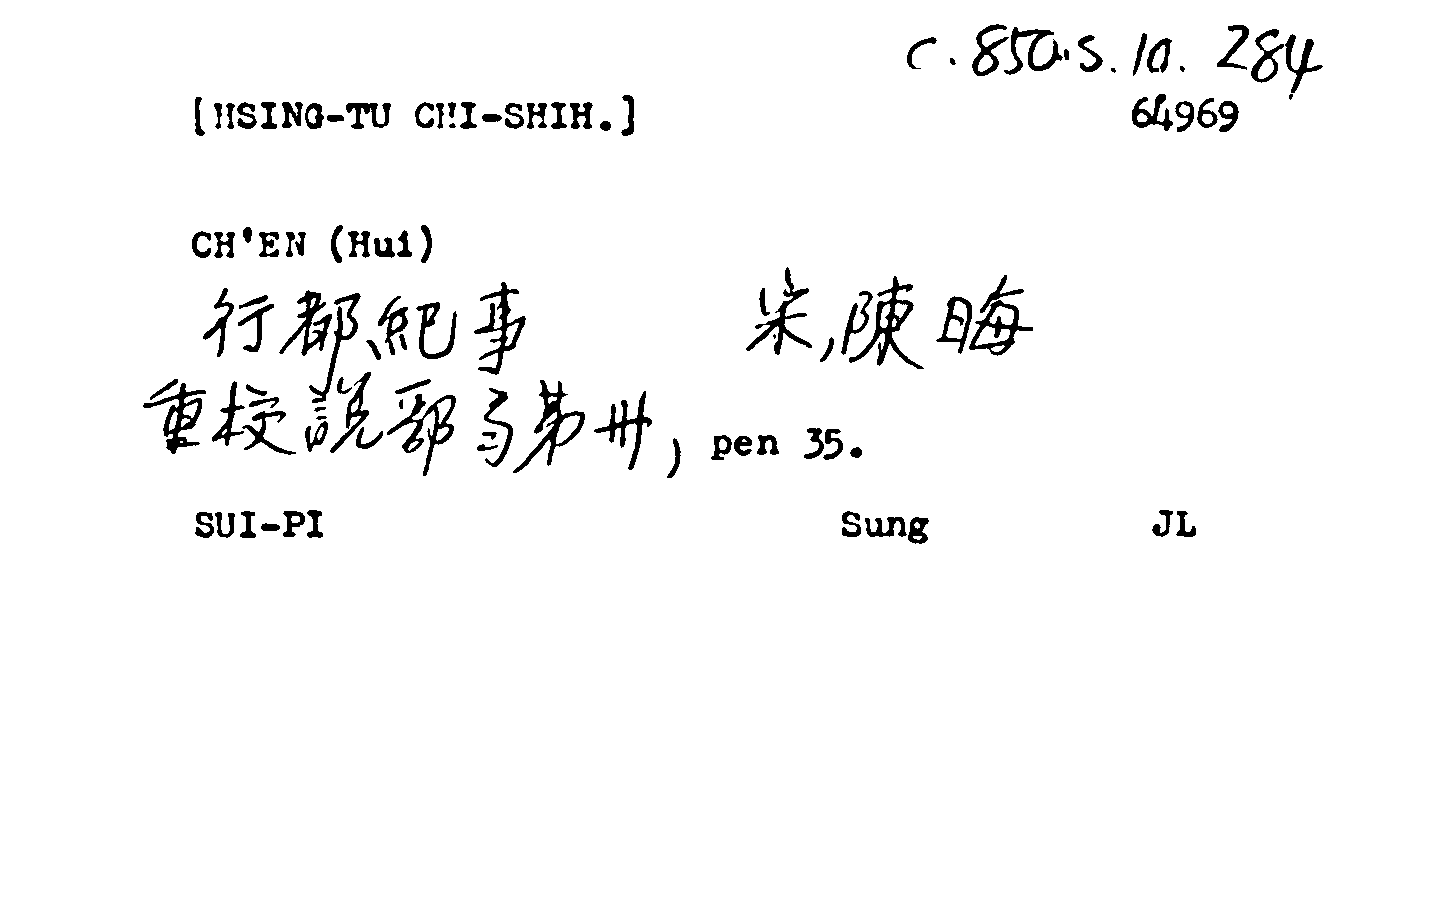 C.850.S.10. 284
[HSING-TU CHI-SHIH.] 64969
CH'EN (Hui)
行都紀事 宋,陳晦
重校說郛弓第卅, pen 35.
SUI-PI Sung JL